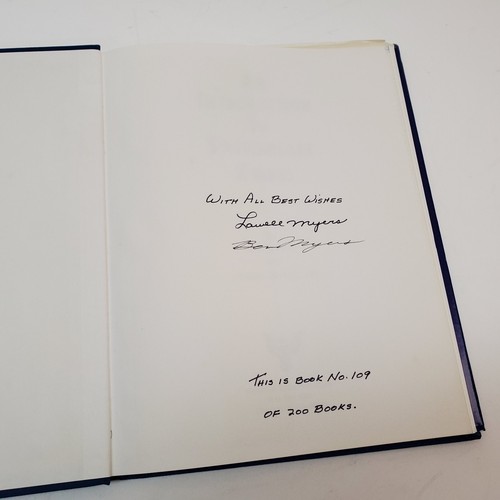 With All Best Wishes
Lowell Myers
Ben Myers
This is Book No. 109
of 200 Books.